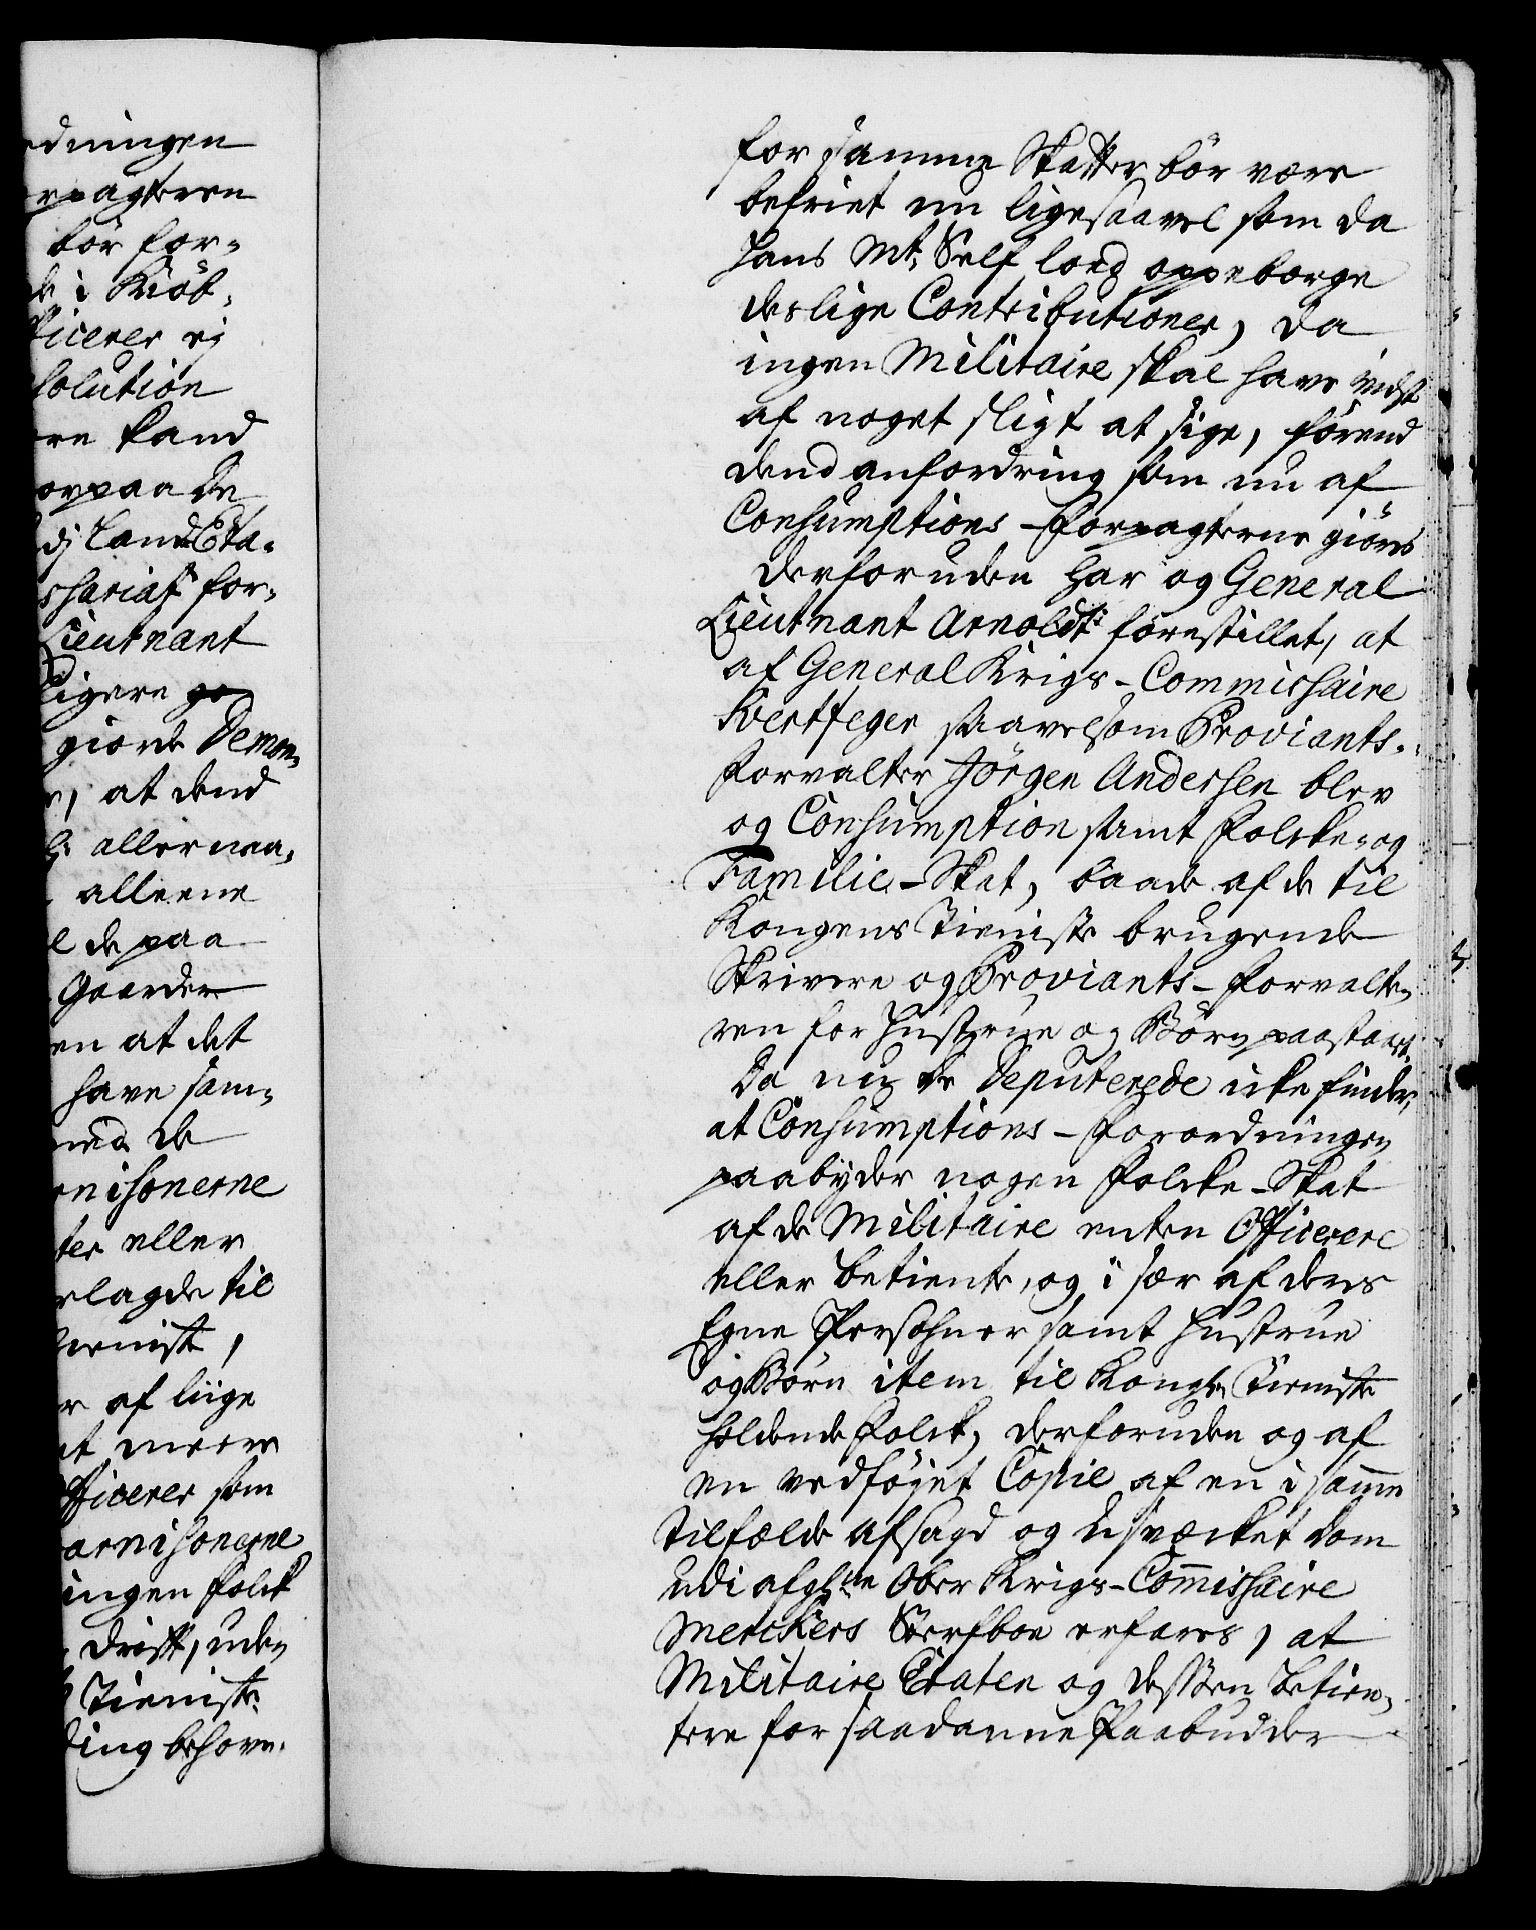 dningen
rpagteren
bör for-
de i Kiöb-
ficerer ej
solution
re kand
orpaa de
dj Land Eta-
sariat for-
Lieutnant
ligere
giorde Demon-
r, at dend
allernaa-
alleene
l de paa
Gaarder
en at det
have sam-
med de
rnisonerne
ter eller
rlagde til
ieniste,
r af liige
et meere
fficerer som
arnisonerne
ingen folck
Drifft, uden
Tieniste
ding behöve.
for samme Skatter bör være
befriet nu ligesaavel som da
Hans Mt. Self lod oppeborge
deslige Contributioner, da
ingen Militaire skal have vidst
af noget sligt at sige, förend
dend anfordring som nu af
Consumptions-forpagterne giöres
derforuden har og General
Lieutnant Arnoldt forestillet, at
af General Krigs-Commissaire
Svertfeger saavelsom Proviants-
forvalter Jörgen Andersen blev
og Consumption samt folcke- og
Familie-Skat, baade af de til
Kongens Tieniste brugende
Skrivere og Proviants-forvalte-
ren for Hustrue og Börn paastaaet.
Da nu de Deputerede icke finder,
at Consumptions-forordningen
paabyder nogen folcke-Skat
af de Militaire enten Officerere
eller betiente, og i sær af deres
Egne Persohner samt Hustrue
og Börn item til Kongens Tieniste
holdende folck, derforuden og af
en vedföjet Copie af en i samme
tilfælde afsagd og udsvæcket dom
udi afgl:ne Ober Krigs-Commissaire
Merckers Sterfboe erfares, at
Militaire Etaten og dessen betien-
tere for saadanne Paabudder